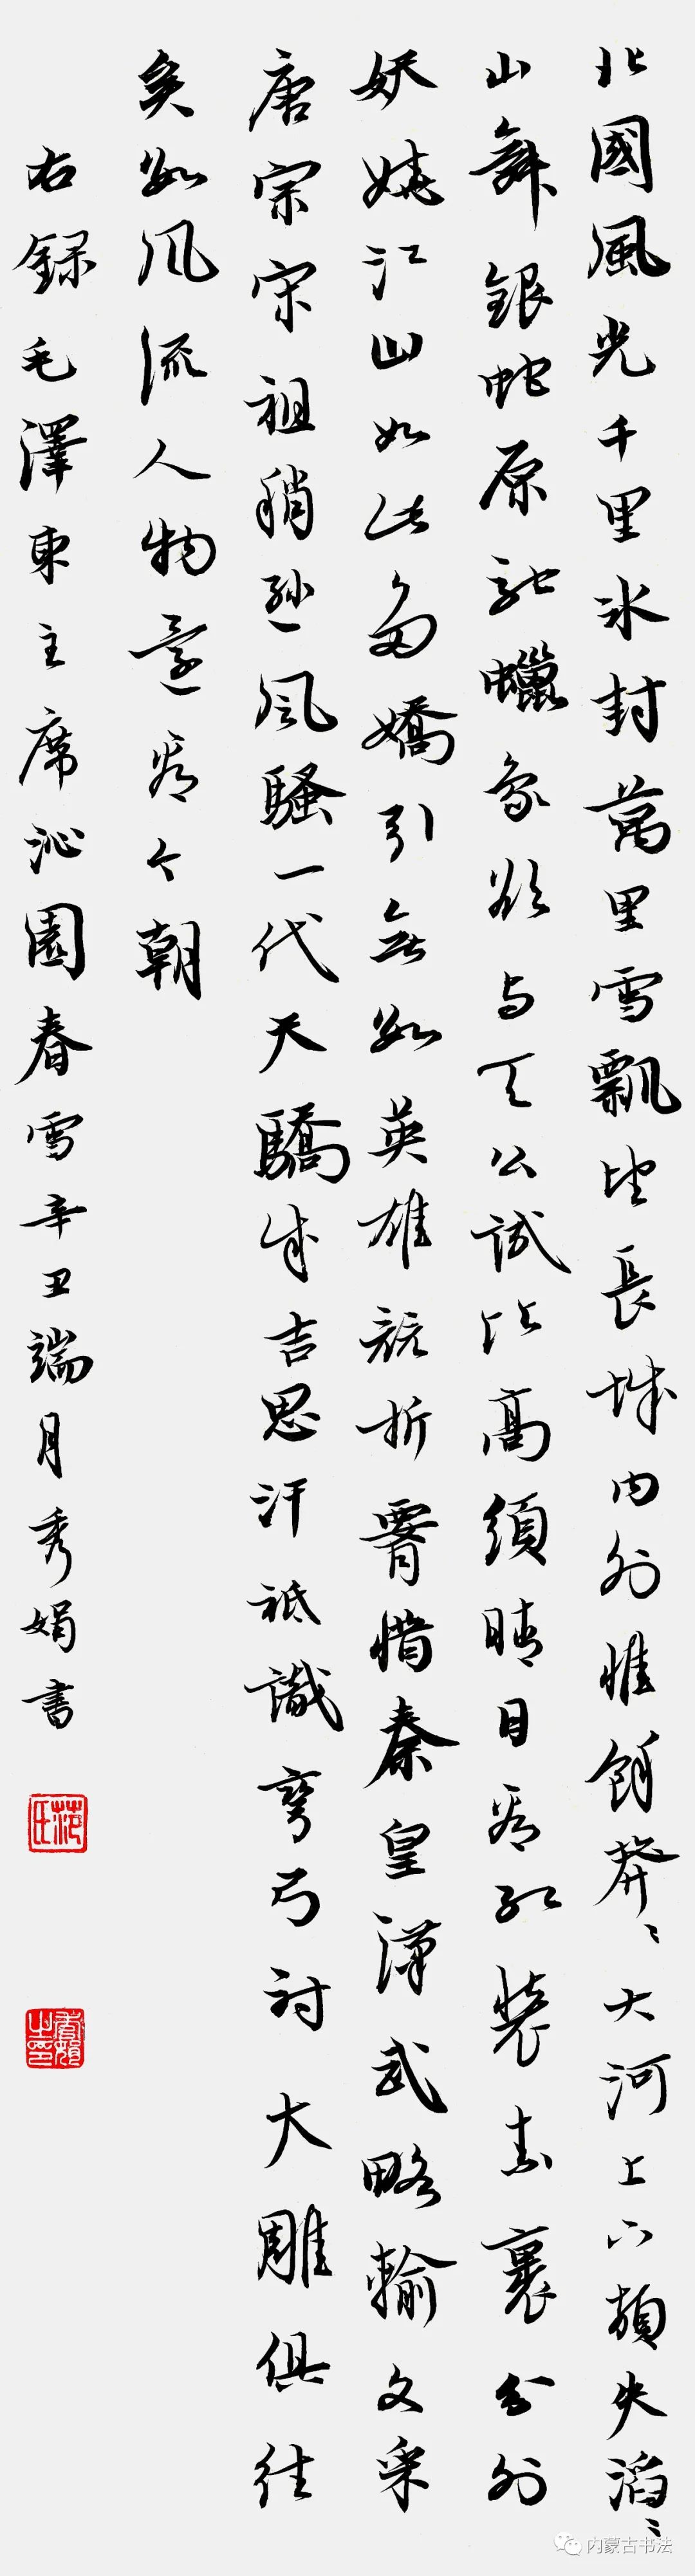 北國風光千里冰封萬里雪飄望長城内外惟餘莽〻大河上下頓失滔〻
山舞銀蛇原馳蠟象欲与天公試比高須晴日看紅裝素裹分外
妖嬈江山如此多嬌引無數英雄競折腰惜秦皇漢武略輸文采
唐宗宋祖稍遜風騷一代天驕成吉思汗祗識彎弓射大雕俱往
矣數風流人物還看今朝
右録毛澤東主席沁園春雪辛丑端月秀娟書
范氏
秀娟之印
内蒙古书法